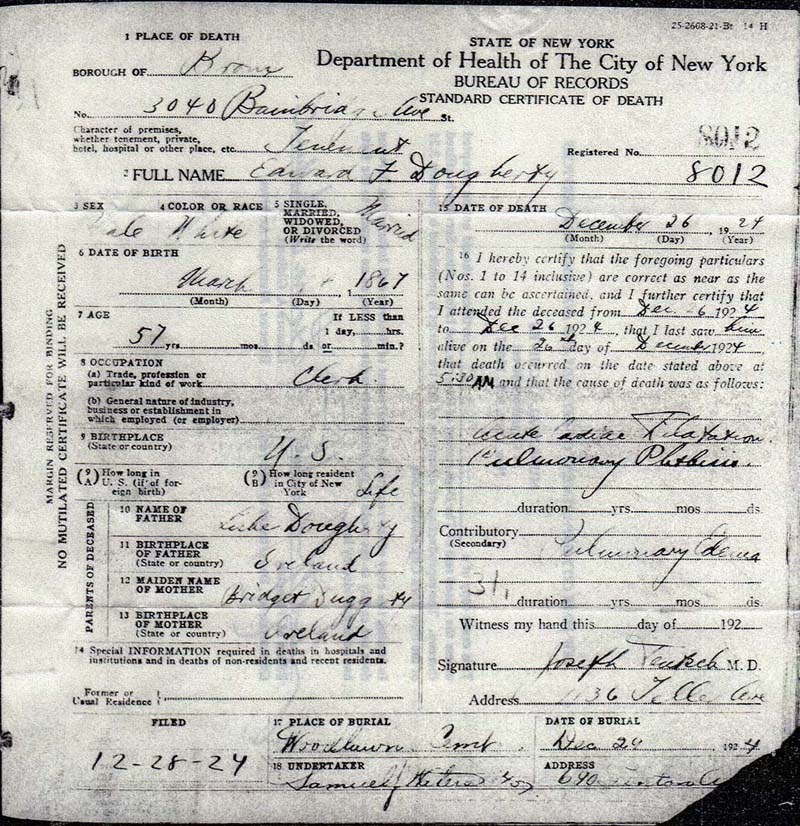 25-2668-21-Bt 14 H
1 PLACE OF DEATH
STATE OF NEW YORK
Department of Health of The City of New York
BUREAU OF RECORDS
STANDARD CERTIFICATE OF DEATH
BOROUGH OF Bronx
No. 3040 Bainbridge Ave St.
Character of premises,
whether tenement, private,
hotel, hospital or other place, etc. Tenement
8012
Registered No. 8012
2 FULL NAME Edward F Dougherty
MARGIN RESERVED FOR BINDING
NO MUTILATED CERTIFICATE WILL BE RECEIVED
3 SEX Male
4 COLOR OR RACE White
5 SINGLE,
MARRIED,
WIDOWED,
OR DIVORCED
(Write the word) Married
6 DATE OF BIRTH
March 1867
(Month) (Day) (Year)
7 AGE
If LESS than
1 day, hrs.
57 yrs. mos. ds. or min.?
8 OCCUPATION
(a) Trade, profession or
particular kind of work Clerk
(b) General nature of industry,
business or establishment in
which employed (or employer)
9 BIRTHPLACE
(State or country) U. S.
(9 A) How long in
U. S. (if of for-
eign birth)
(9 B) How long resident
in City of New
York Life
PARENTS OF DECEASED
10 NAME OF
FATHER Dougherty
11 BIRTHPLACE
OF FATHER
(State or country) Ireland
12 MAIDEN NAME
OF MOTHER Bridget
13 BIRTHPLACE
OF MOTHER
(State or country) Ireland
14 Special INFORMATION required in deaths in hospitals and
institutions and in deaths of non-residents and recent residents.
Former or
Usual Residence
15 DATE OF DEATH
December 26 1924
(Month) (Day) (Year)
16 I hereby certify that the foregoing particulars
(Nos. 1 to 14 inclusive) are correct as near as the
same can be ascertained, and I further certify that
I attended the deceased from Dec 6 1924
to Dec 26 1924, that I last saw him
alive on the 26th day of December 1924
that death occurred on the date stated above at
5:30 AM and that the cause of death was as follows:
Acute Cadiac Dilatation
Pulmonary Phthisis.
duration yrs. mos ds.
Contributory
(Secondary) Pulmonary Edema
duration yrs. mos. ds.
Witness my hand this day of 192
Signature Joseph M. D.
Address Ave
FILED
12-28-24
17 PLACE OF BURIAL
Woodlawn Cemt.
DATE OF BURIAL
Dec 29 1924
18 UNDERTAKER
Samuel J
ADDRESS
690